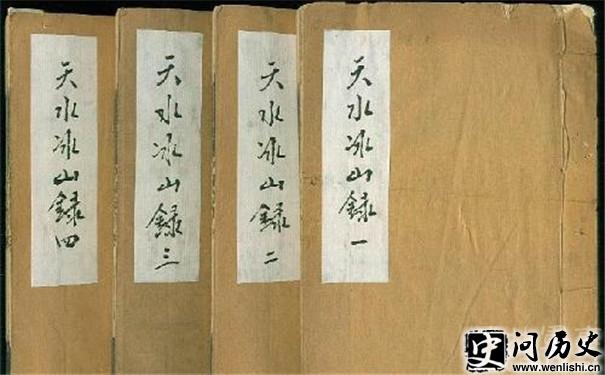 天水冰山録一
天水冰山録二
天水冰山録三
天水冰山録四
史问历史
www.wenlishi.cn